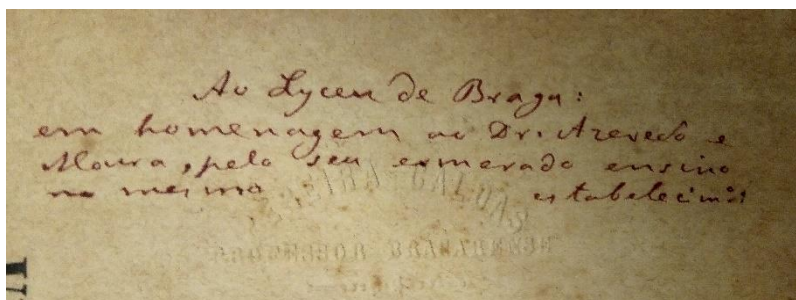 Ao Lyceu de Braga:
em homenagem ao Dr. Azevedo e
Moura, pelo seu esmerado ensino
no mesmo estabelecimto: